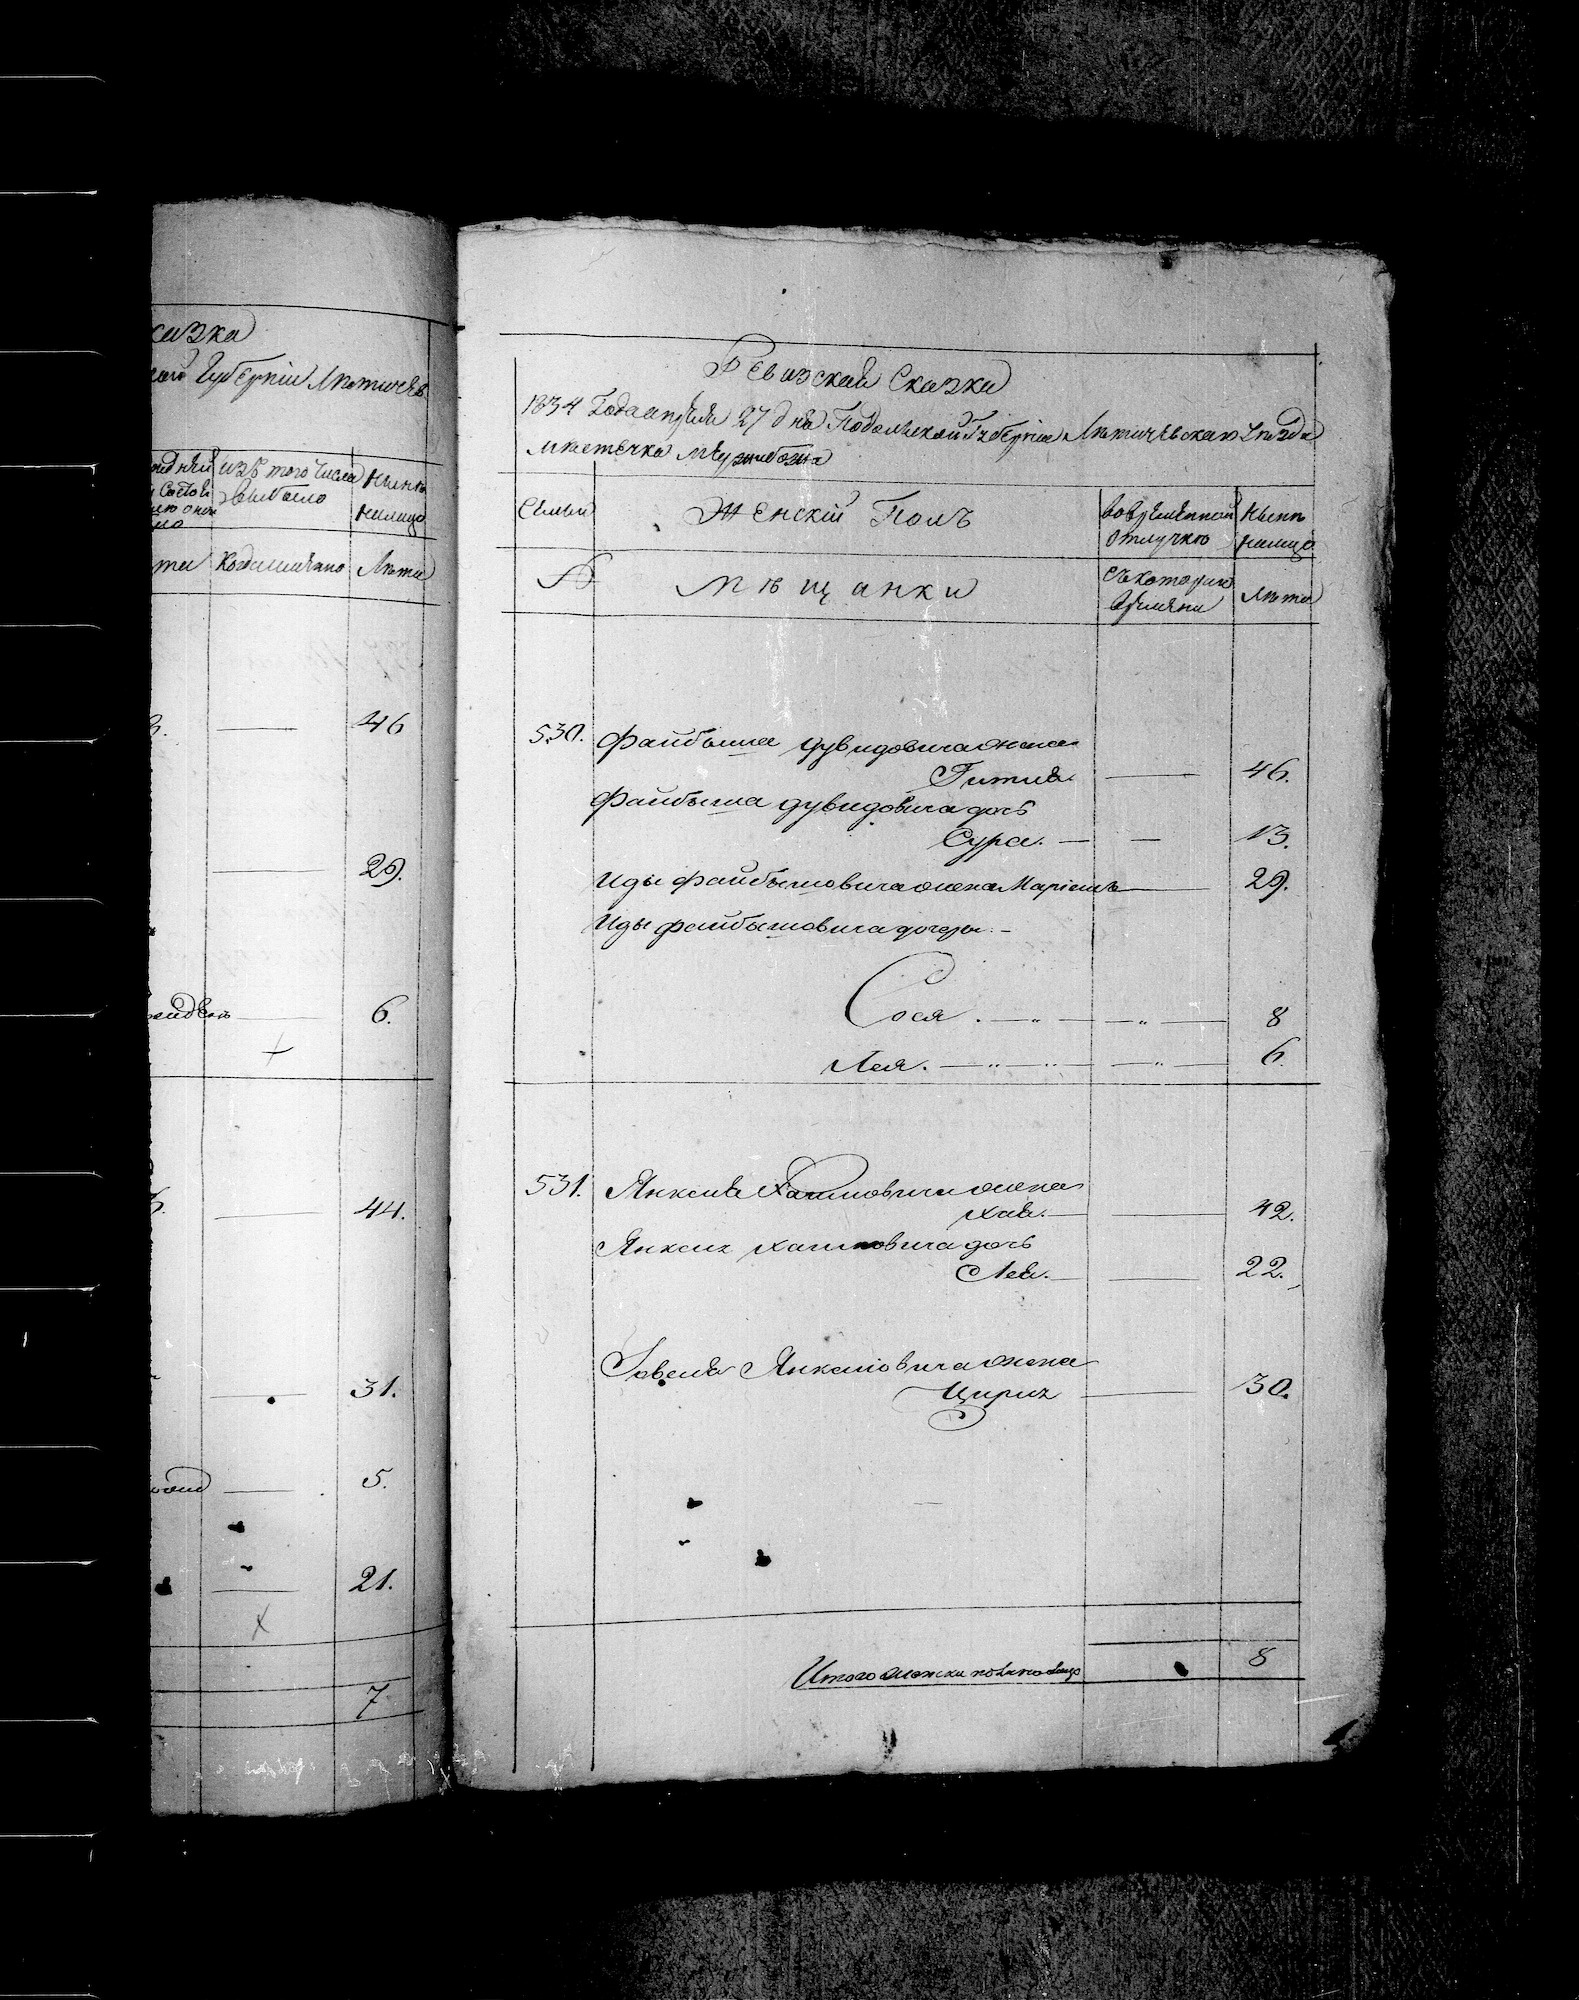 сказка
Губернїи Лѣтичев
изъ того числа
выбыло
нынѣ
налицо
Когда именно
Лѣта
46
29.
6.
44.
31.
5.
21.
7
Ревизская Сказка
1834 Года апреля 27 дня Подольской Губернїи Лѣтичевскаго Уѣзда
мѣстечка Межибожа
Семьи
Женскїй Полъ
Вовременной
отлучкѣ
Нынѣ
налицо
№
Мѣщанки
Съкотораго
времяни
Лѣта
530. Файбыша Дувидовича жена
Гитля 46.
Файбыша дувидовича дочь
Сура. 13.
Иды файбышовича жена Марїемъ 29.
Иды файбышовича дочери
Сося 8
Лея. 6.
531. Янкеля Хаимовича жена
Хая. 42.
Янкеля хаимовича дочь
Лея. 22.
Янкелiовича жена
30.
Итого женска пола налицо 8